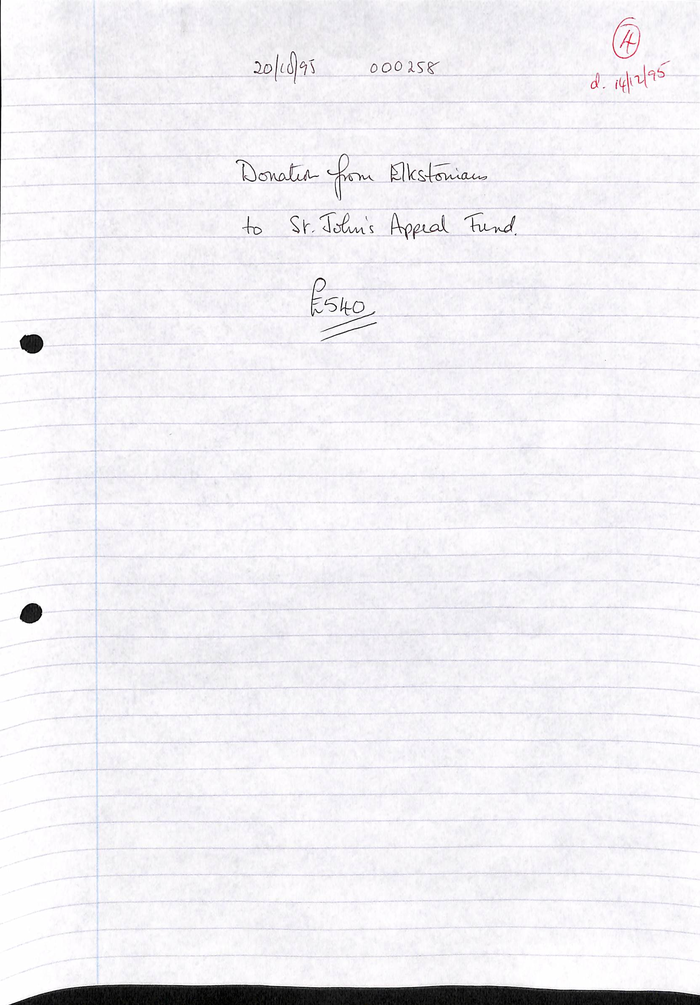 20/10/95 000258
4
d. 14/12/95
Donation from Elkstonians
to St. John's Appeal Fund.
£540